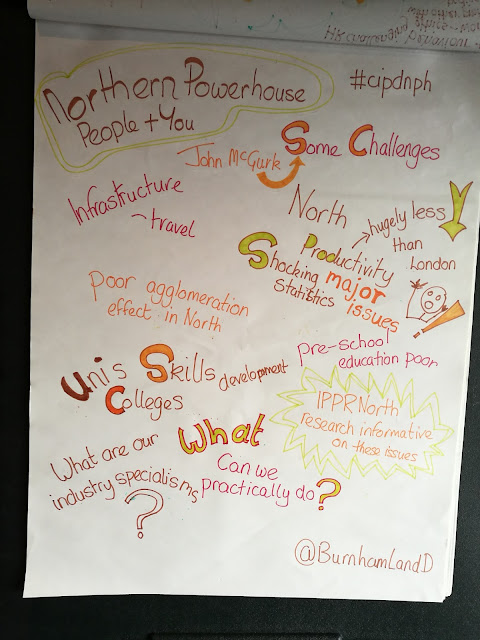 Northern Powerhouse
People + You
#cipdnph
Some Challenges
John McGurk
Infrastructure
travel
North
Productivity
hugely less
than
London
Shocking
Statistics
major
issues
Poor agglomeration
effect in North
Pre-school
education poor
Unis Skills development
Colleges
IPPRNorth
research informative
on these issues
What are our
industry specialisms
?
What
Can we
practically do?
@BurnhamLandD